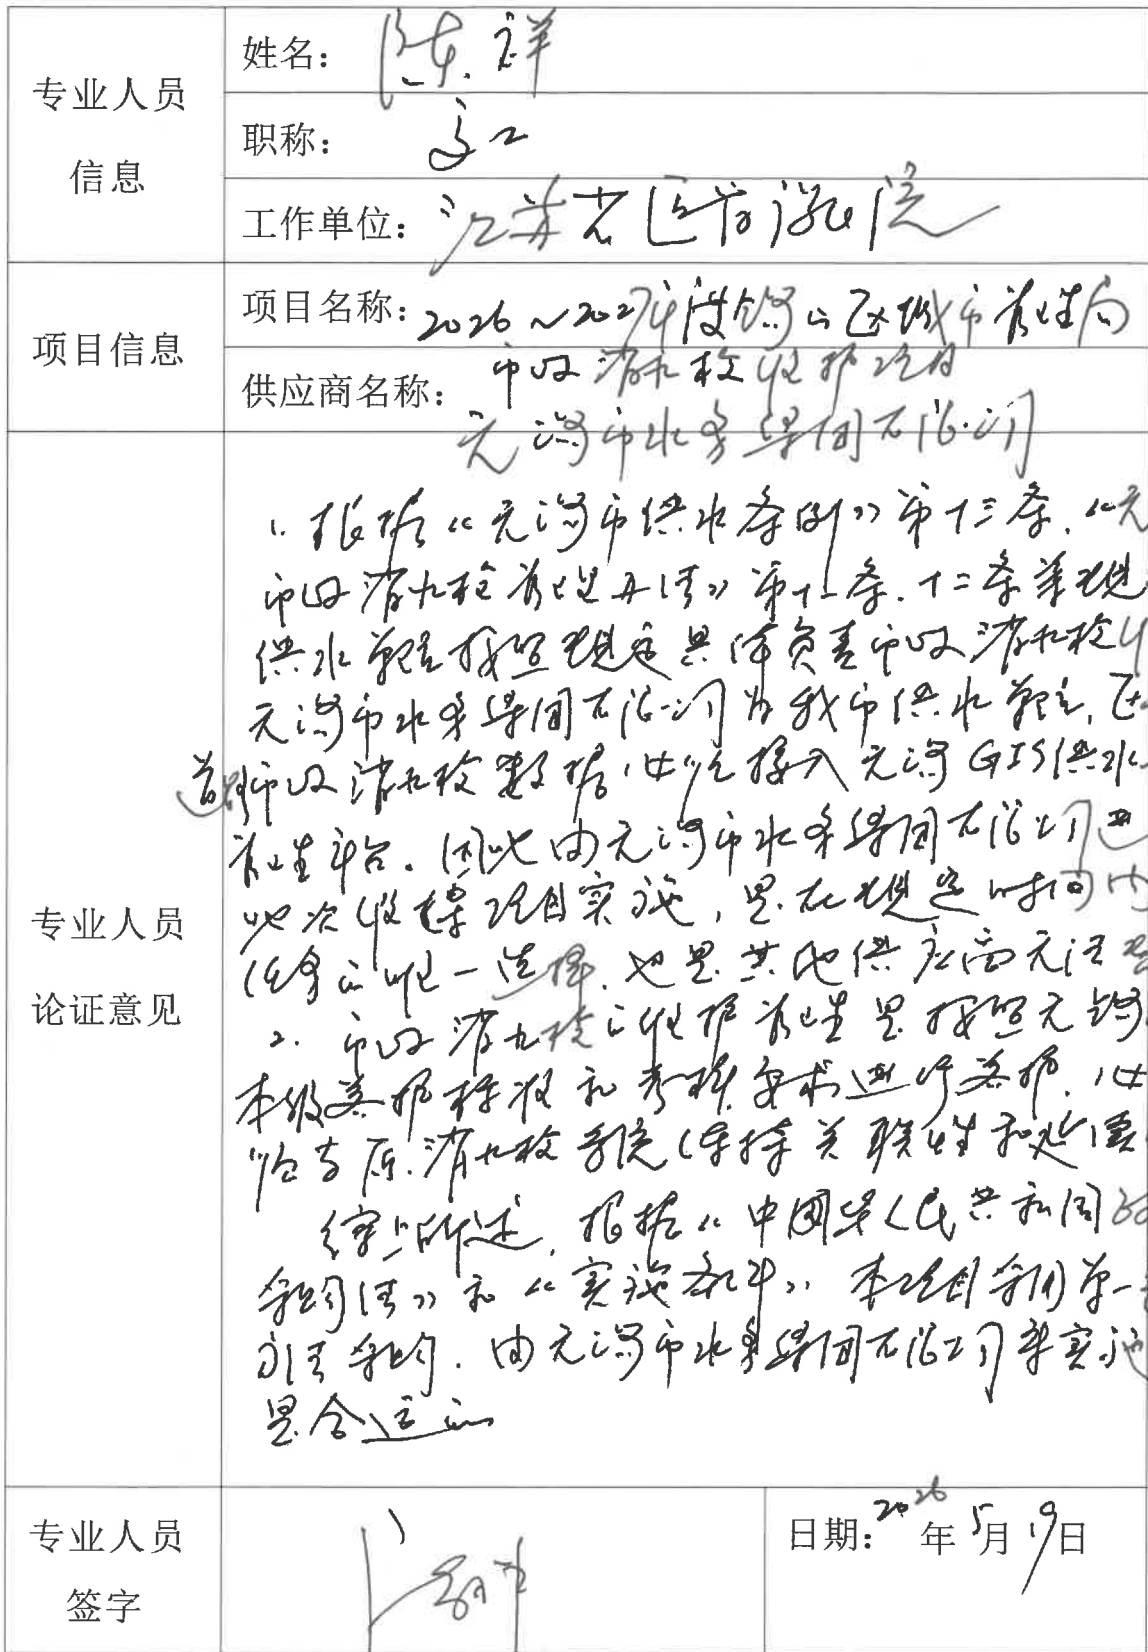 专业人员
信息
姓名：陈祥
职称：高工
工作单位：江苏省医药设计院
项目信息
项目名称：2026～2027年度锡山区城市管理局
市政消火栓维护项目
供应商名称：
无锡市水务集团有限公司
专业人员
论证意见
1. 根据《无锡市供水条例》第十三条，《无
市政消火栓管理办法》第十一条、十二条等规
供水单位按照规定具体负责市政消火栓
无锡市水务集团有限公司为我市供水单位，区
道路市政消火栓数据必须接入无锡GIS供水
管理平台。因此由无锡市水务集团有限公司进
此次 项目实施，是在规定时间内
任务的唯一选择，也是其他供应商无法
2. 市政消火栓的维护管理是按照无锡
本级养护标准和考核要求进行养护，必
须与原消火栓系统保持关联性和延续
综上所述，根据《中国华人民共和国
采购法》和《实施条例》，本项目采用单一
方法采购，由无锡市水务集团有限公司来实施
是合适的
专业人员
签字
日期：2026年5月19日